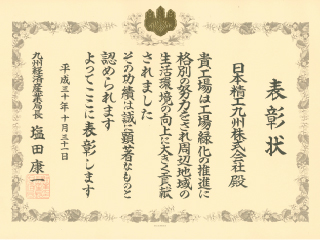 表彰状
日本精工九州株式会社殿
貴工場は工場緑化の推進に
格別の努力をされ周辺地域の
生活環境の向上に大きく貢献
されました
その功績は誠に顕著なものと
認められます
よってここに表彰します
平成三十年十月三十一日
九州経済産業局長 塩田康一